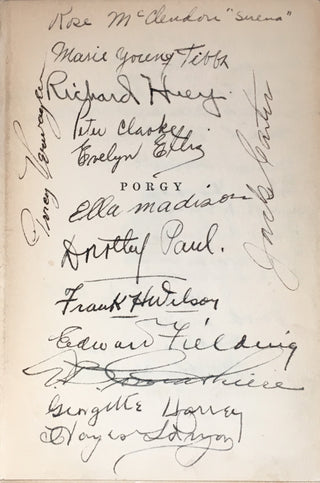 Rose McClendon "Serena"
Marie Young Tibbs
Richard Huey.
Percy Verwayne
Peter Clarke
Evelyn Ellis
Jack Carter
PORGY
Ella Madison
Dorothy Paul.
Frank H Wilson
Edward Fielding
Georgette Harvey
Hayes Pryor